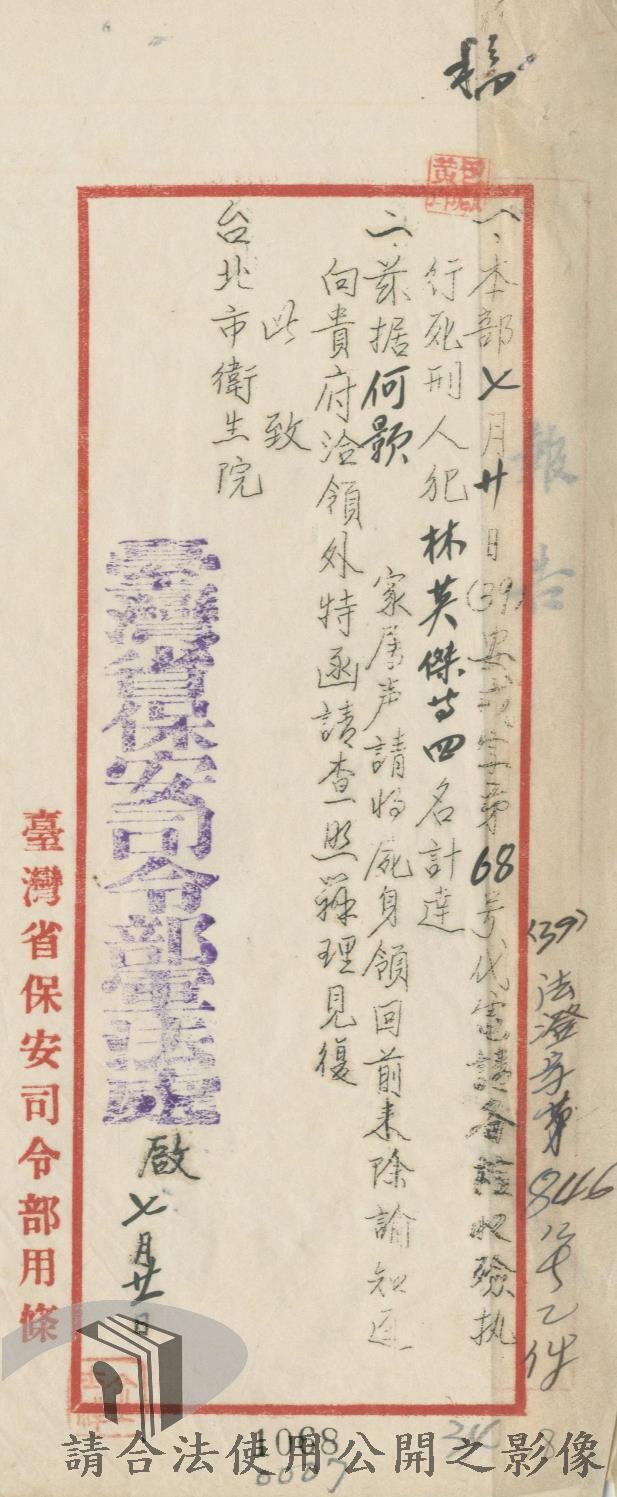 稿
報告
(39)法澄字第846號乙件
一、本部七月廿日(39)安 字第68号代電請 收殮执
行死刑人犯林英傑等四名計達
二、茲据何顥 家屬声請將屍身領回前来除諭知逕
向貴府洽領外特函請查照辦理見復
此致
台北市衛生院
臺灣省保安司令部軍法處
啟 七月廿一日
臺灣省保安司令部用條
1068
0007
34
8
請合法使用公開之影像